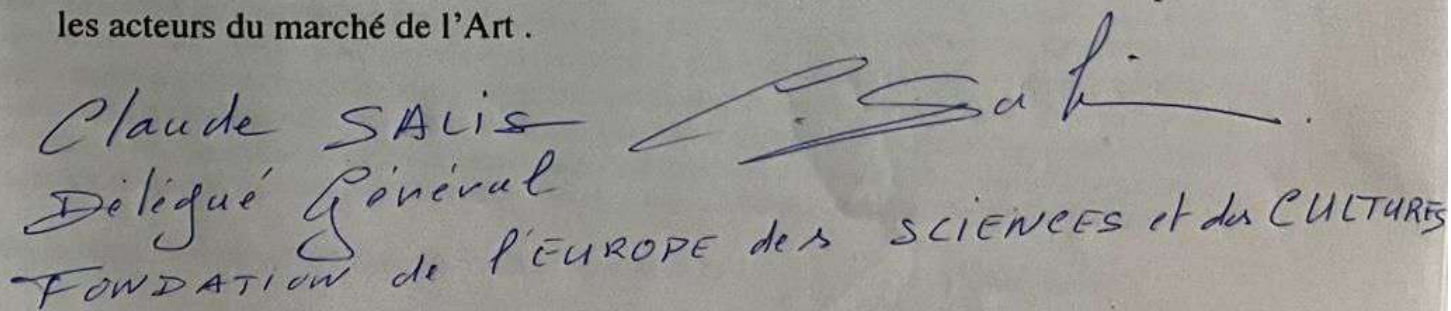 les acteurs du marché de l'Art .
Claude SALIS C. Salis
Délégué Général
FONDATION de l'EUROPE des SCIENCES et des CULTURES